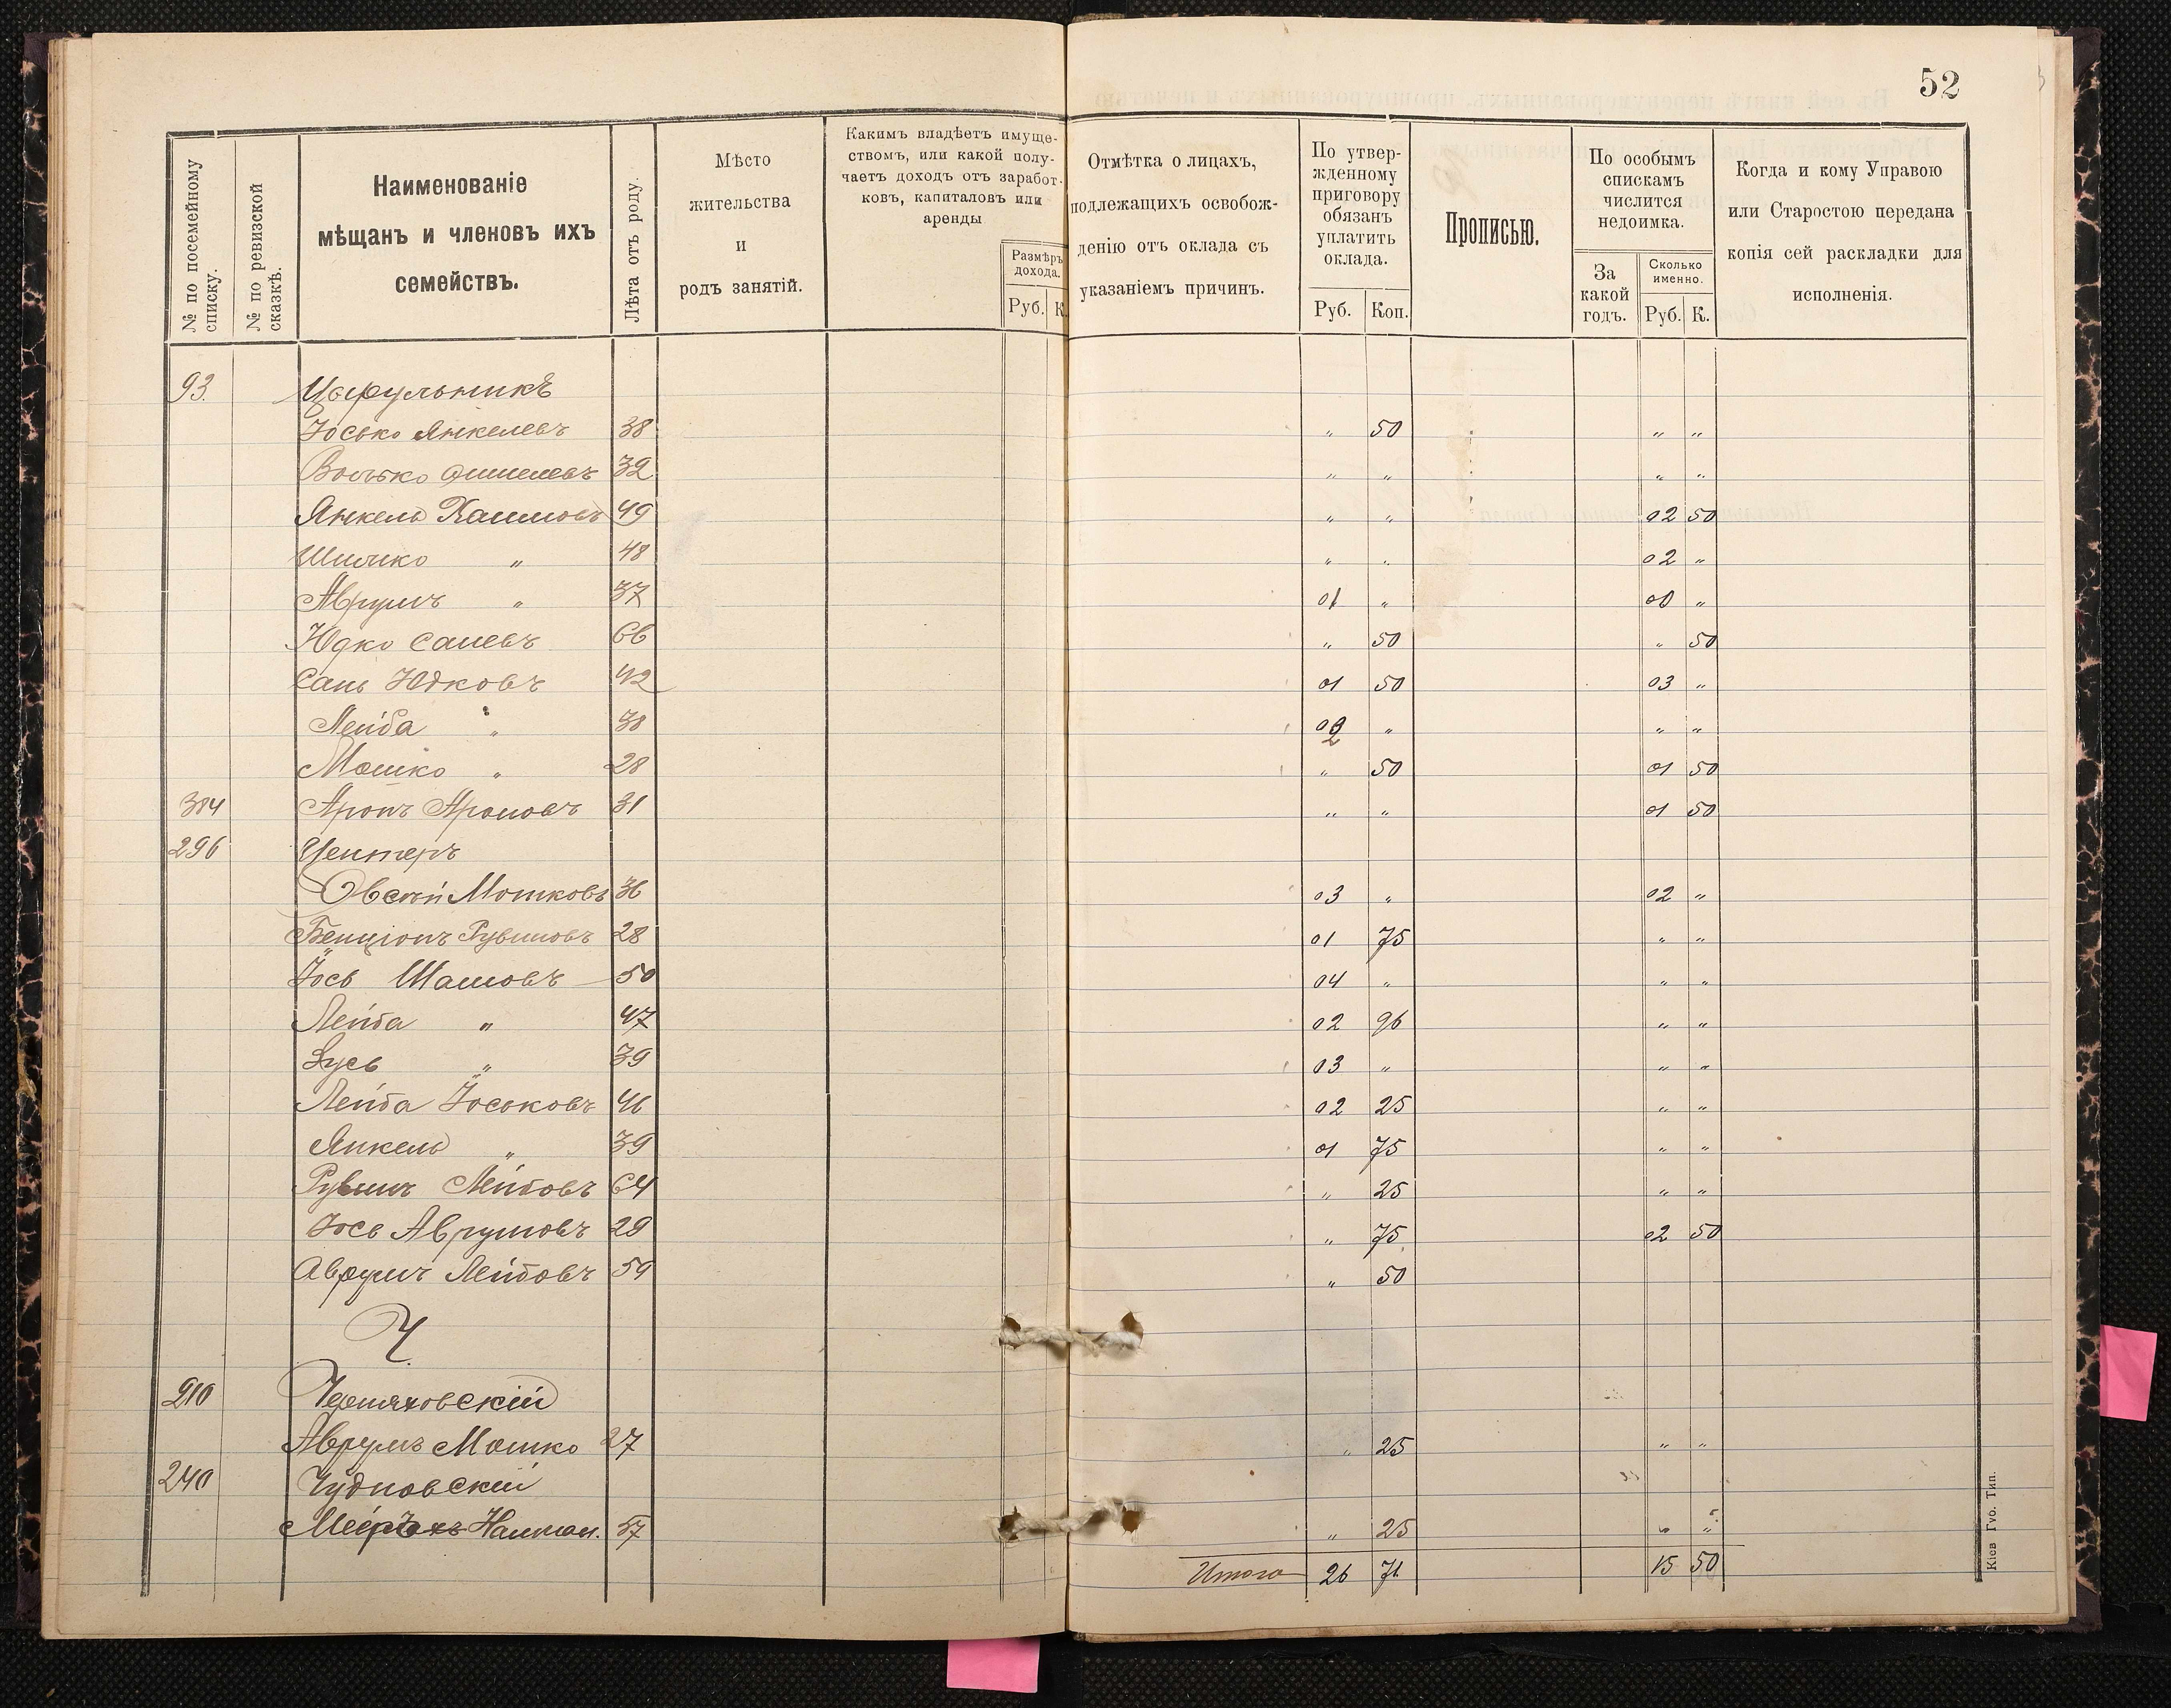 52
№ по посемейному списку.
№ по ревизской сказкѣ.
Наименованіе
мѣщанъ и членовъ ихъ
семействъ.
Лѣта отъ роду.
Мѣсто
жительства
и
родъ занятій.
Какимъ владѣетъ имуще-
ствомъ, или какой полу-
чаетъ доходъ отъ заработ-
ковъ, капиталовъ или
аренды
Размѣръ
дохода.
Руб. К.
Отмѣтка о лицахъ,
подлежащихъ освобож-
денію отъ оклада съ
указаніемъ причинъ.
По утвер-
жденному
приговору
обязанъ
уплатить
оклада.
Руб. Коп.
Прописью.
По особымъ
спискамъ
числится
недоимка.
За
какой
годъ.
Сколько
именно.
Руб. К.
Когда и кому Управою
или Старостою передана
копія сей раскладки для
исполненія.
93. Цырульникъ
Іосько Янкелевъ 38 „ 50 „ „
Волько 32 „ „ „ „
Янкель Хаимовъ 49 „ „ 02 50
Шмилко „ 48 „ „ 02 „
Аврумъ „ 37 01 „ 00 „
Юдко Саневъ 66 „ 50 „ 50
Сань Юдковъ 42 01 50 03 „
Лейба „ 38 „ „ „
Мошко „ 28 „ 50 01 50
384 Аронъ Ароновъ 31 „ „ 01 50
296 Центеръ
Овсѣй Мошковъ 36 03 „ 02 „
Бенціонъ Рувиновъ 28 01 75 „ „
Іось Шамовъ 50 04 „ „ „
Лейба „ 47 02 96 „ „
Зусь „ 39 03 „ „ „
Лейба Іоськовъ 46 02 25 „ „
Янкель „ 39 01 75 „ „
Рувинъ Лейбовъ 64 „ 25 „ „
Іось Аврумовъ 29 „ 75 02 50
Аврумъ Лейбовъ 59 „ 50
Ч.
910 Черняховскій
Аврумъ Мошко 27 „ 25 „ „
240 Чудновскій
Нахман. 57 „ 25 „ „
Итого 26 71 15 50
Кіев Гуо. Тип.